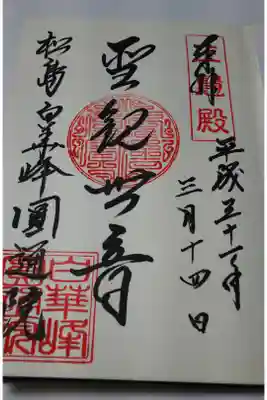 奉拝
平成三十一年
三月十四日
聖観世音
松島白華峰圓通院
白華峰